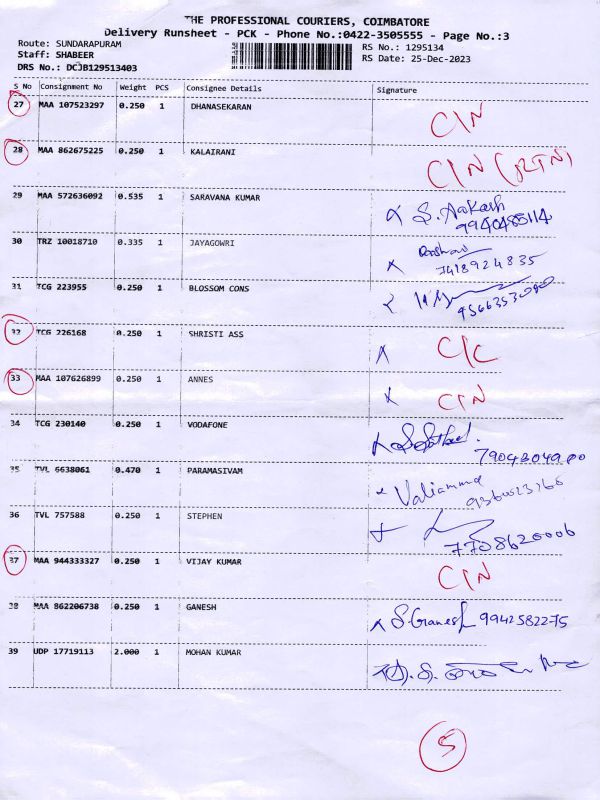 THE PROFESSIONAL COURIERS, COIMBATORE
Delivery Runsheet - PCK - Phone No.:0422-3505555 - Page No.:3
Route: SUNDARAPURAM RS No.: 1295134
Staff: SHABEER RS Date: 25-Dec-2023
DRS No.: DCJB129513403
S No Consignment No Weight PCS Consignee Details Signature
27 MAA 107523297 0.250 1 DHANASEKARAN C/N
28 MAA 862675225 0.250 1 KALAIRANI C/N (RTN)
29 MAA 572636092 0.535 1 SARAVANA KUMAR X S. Aakash
9940485114
30 TRZ 10018710 0.335 1 JAYAGOWRI X
7418924835
31 TCG 223955 0.250 1 BLOSSOM CONS
32 TCG 226168 0.250 1 SHRISTI ASS X C/C
33 MAA 107626899 0.250 1 ANNES X C/N
34 TCG 230140 0.250 1 VODAFONE X
7904304900
35 TVL 6638061 0.470 1 PARAMASIVAM Valiamma
36 TVL 757588 0.250 1 STEPHEN
7708620006
37 MAA 944333327 0.250 1 VIJAY KUMAR C/N
38 MAA 862206738 0.250 1 GANESH X S. Ganesh 9942582275
39 UDP 17719113 2.000 1 MOHAN KUMAR
5